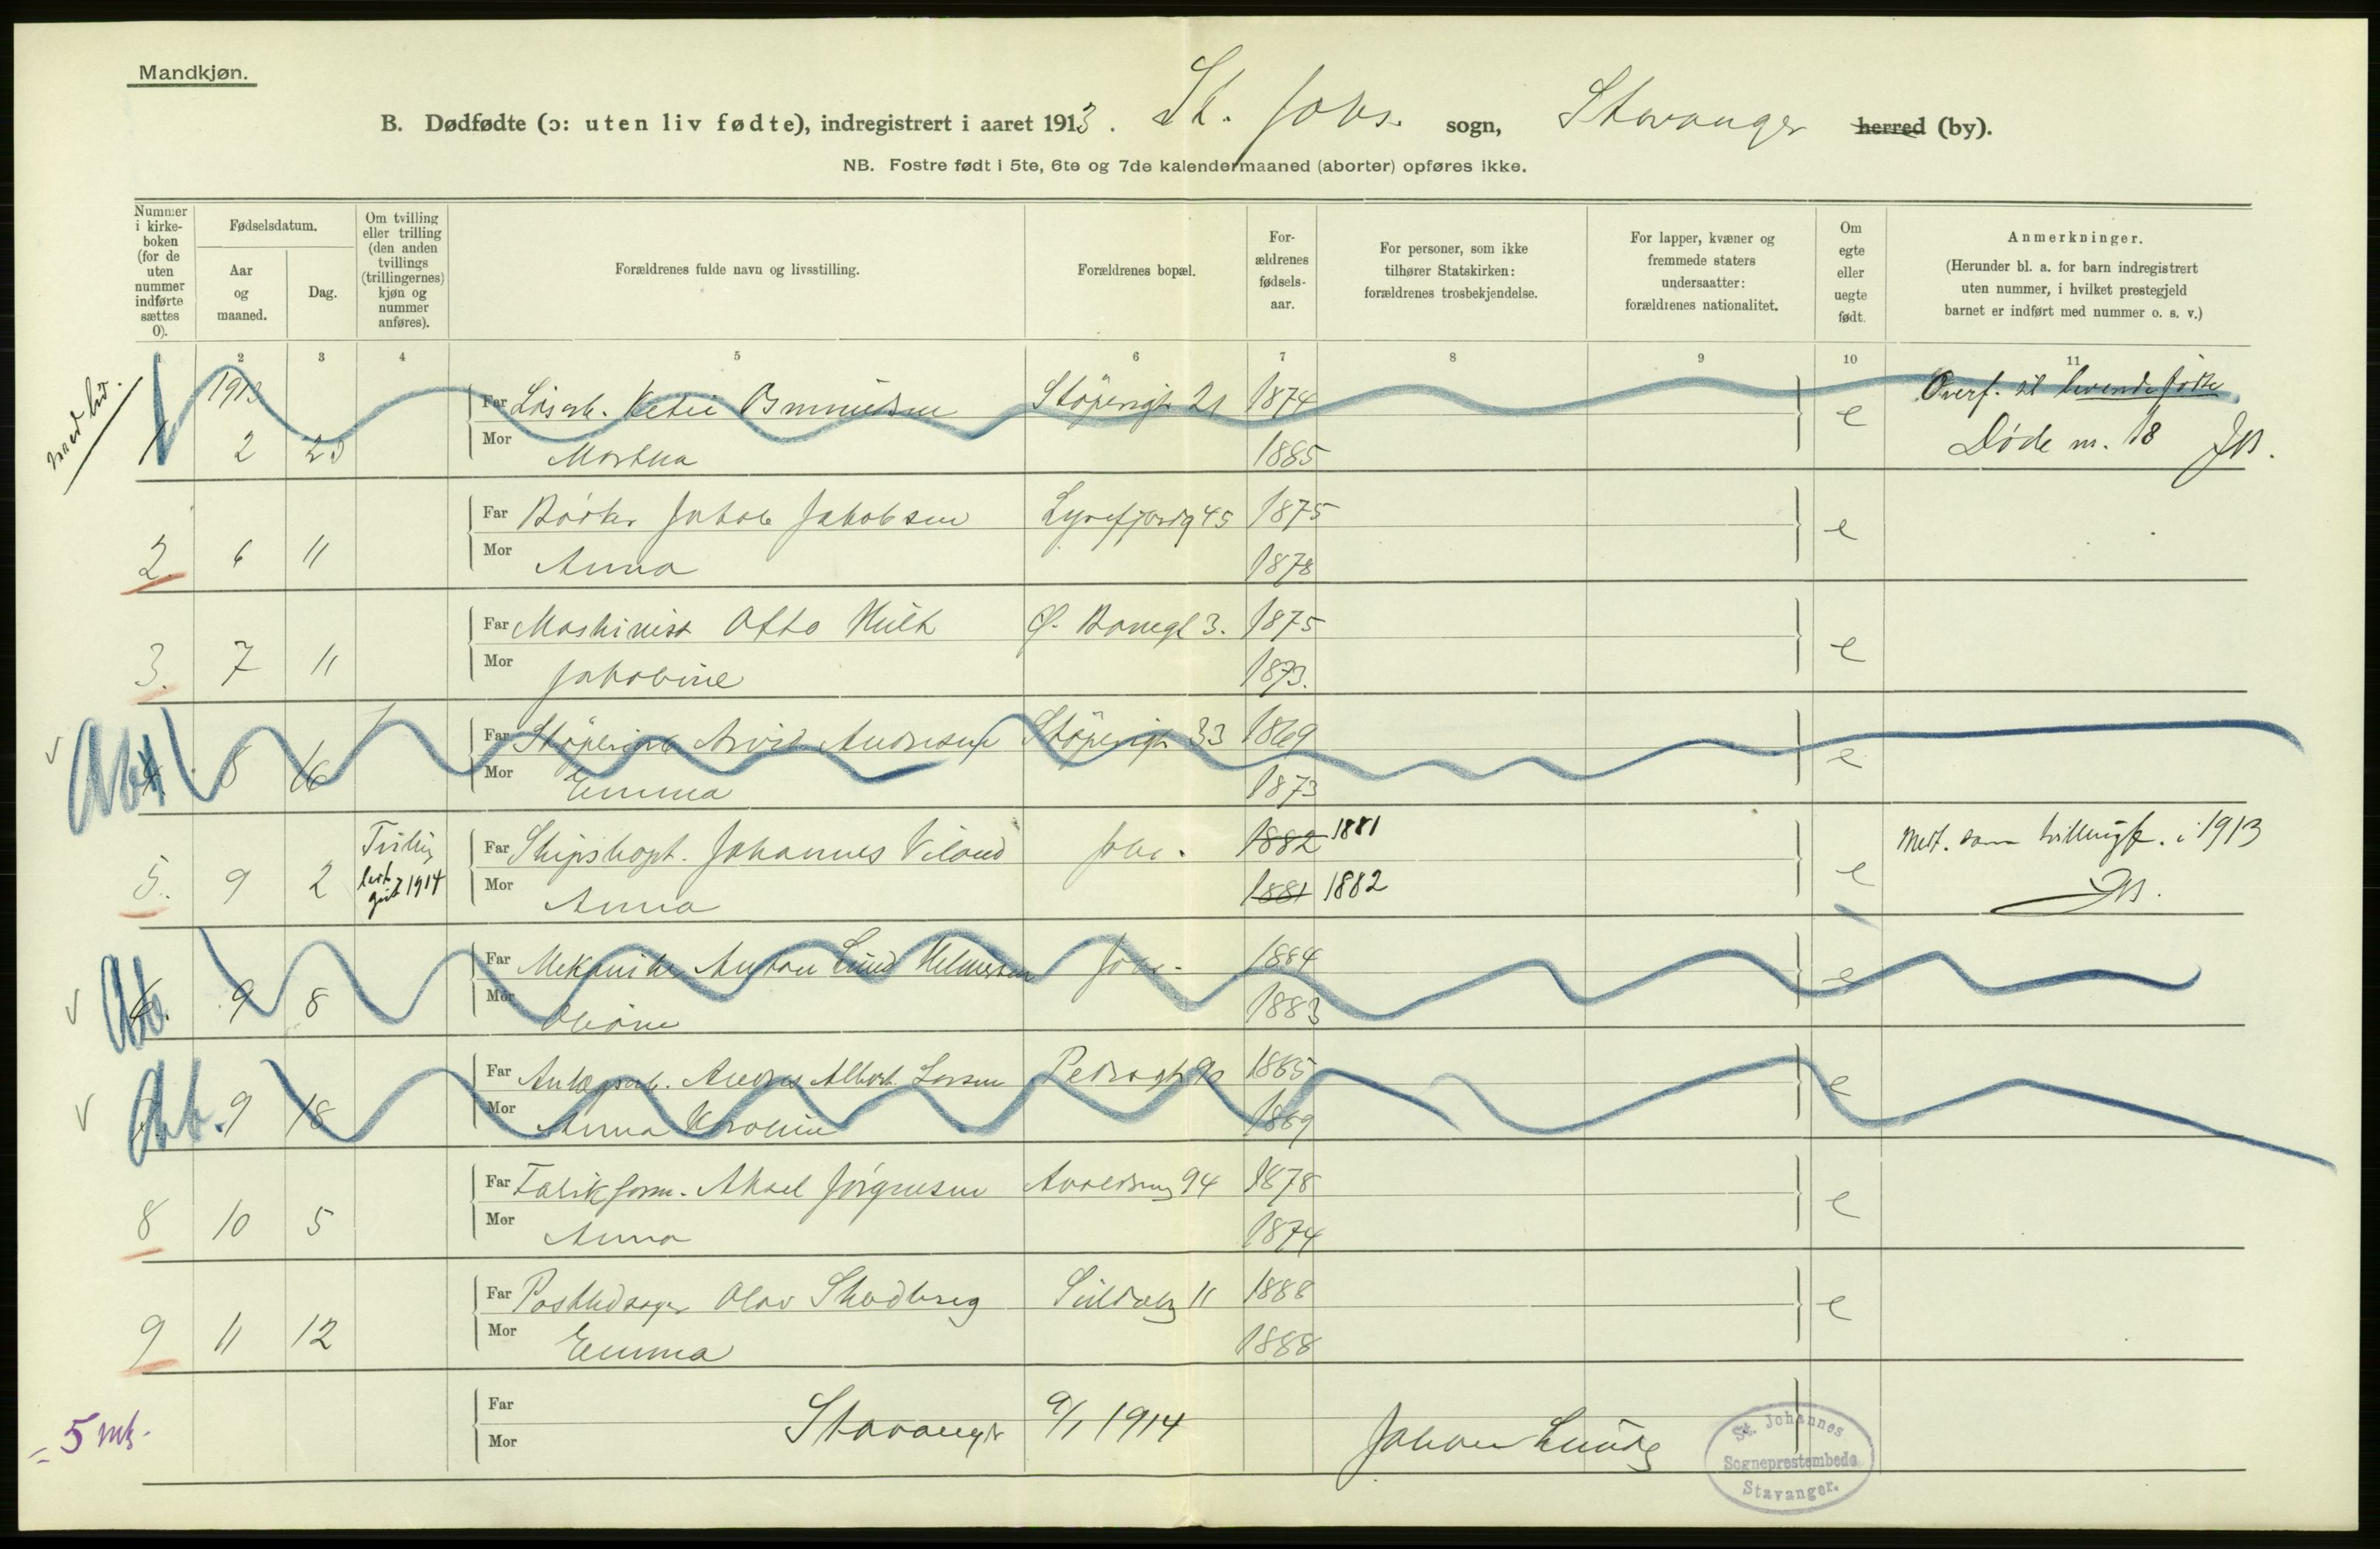 Mandkjøn.
B. Dødfødte (ɔ: uten liv fødte), indregistrert i aaret 1913. St. Johs. sogn, Stavanger herred (by).
NB. Fostre født i 5te, 6te og 7de kalendermaaned (aborter) opføres ikke.
Nummer i kirke-boken (for de uten nummer indførte sættes 0).
Fødselsdatum.
Aar og maaned.
Dag.
Om tvilling eller trilling (den anden tvillings (trillingernes) kjøn og nummer anføres).
Forældrenes fulde navn og livsstilling.
Forældrenes bopæl.
For-ældrenes fødsels-aar.
For personer, som ikke tilhører Statskirken: forældrenes trosbekjendelse.
For lapper, kvæner og fremmede staters undersaatter: forældrenes nationalitet.
Om egte eller uegte født.
Anmerkninger.
(Herunder bl. a. for barn indregistrert uten nummer, i hvilket prestegjeld barnet er indført med nummer o. s. v.)
1 2 3 4 5 6 7 8 9 10 11
1913
Far Løsarb. Stöperigt 21 1874 e Overf. til levende fødte
1 2 Mor Martha 1885 Døde m. 18
Far Bødker Jakob Jakobsen Lysefjordg 45 1875 e
2. 6 11 Mor Anna 1878
Far Maskinist Otto Ø. Banegt 3. 1875 e
3. 7 11 Mor Jakobine 1873.
Ab.
Far Arvid Andresen Stöperigt 33 1869 e
4. 8 16 Mor Emma 1873
Tvilling
Far Skipskapt. Johannes Viland Johs. 1882 1881 e Medt. som tvillingf. i 1913
5. 9 2 1914 Mor Anna 1881 1882
Ab.
Far Mekaniker Anton Johs. 1884 e
6. 9 8 Mor 1883
Ab.
Far Andreas Albert Larsen Pedersgt 90 1865 e
9 18 Mor Anna Karoline 1869
Far Fabrikform. Aksel Jörgensen Avaldsnes 94 1878 e
8 10 5 Mor Anna 1874
Far Postbudsager Olav Suldalsg 11 1888 e
9 11 12 Mor Emma 1888
= 5 mk.
Far
Mor
Stavanger 9/1 1914
St. Johannes
Sogneprestembede
Stavanger.